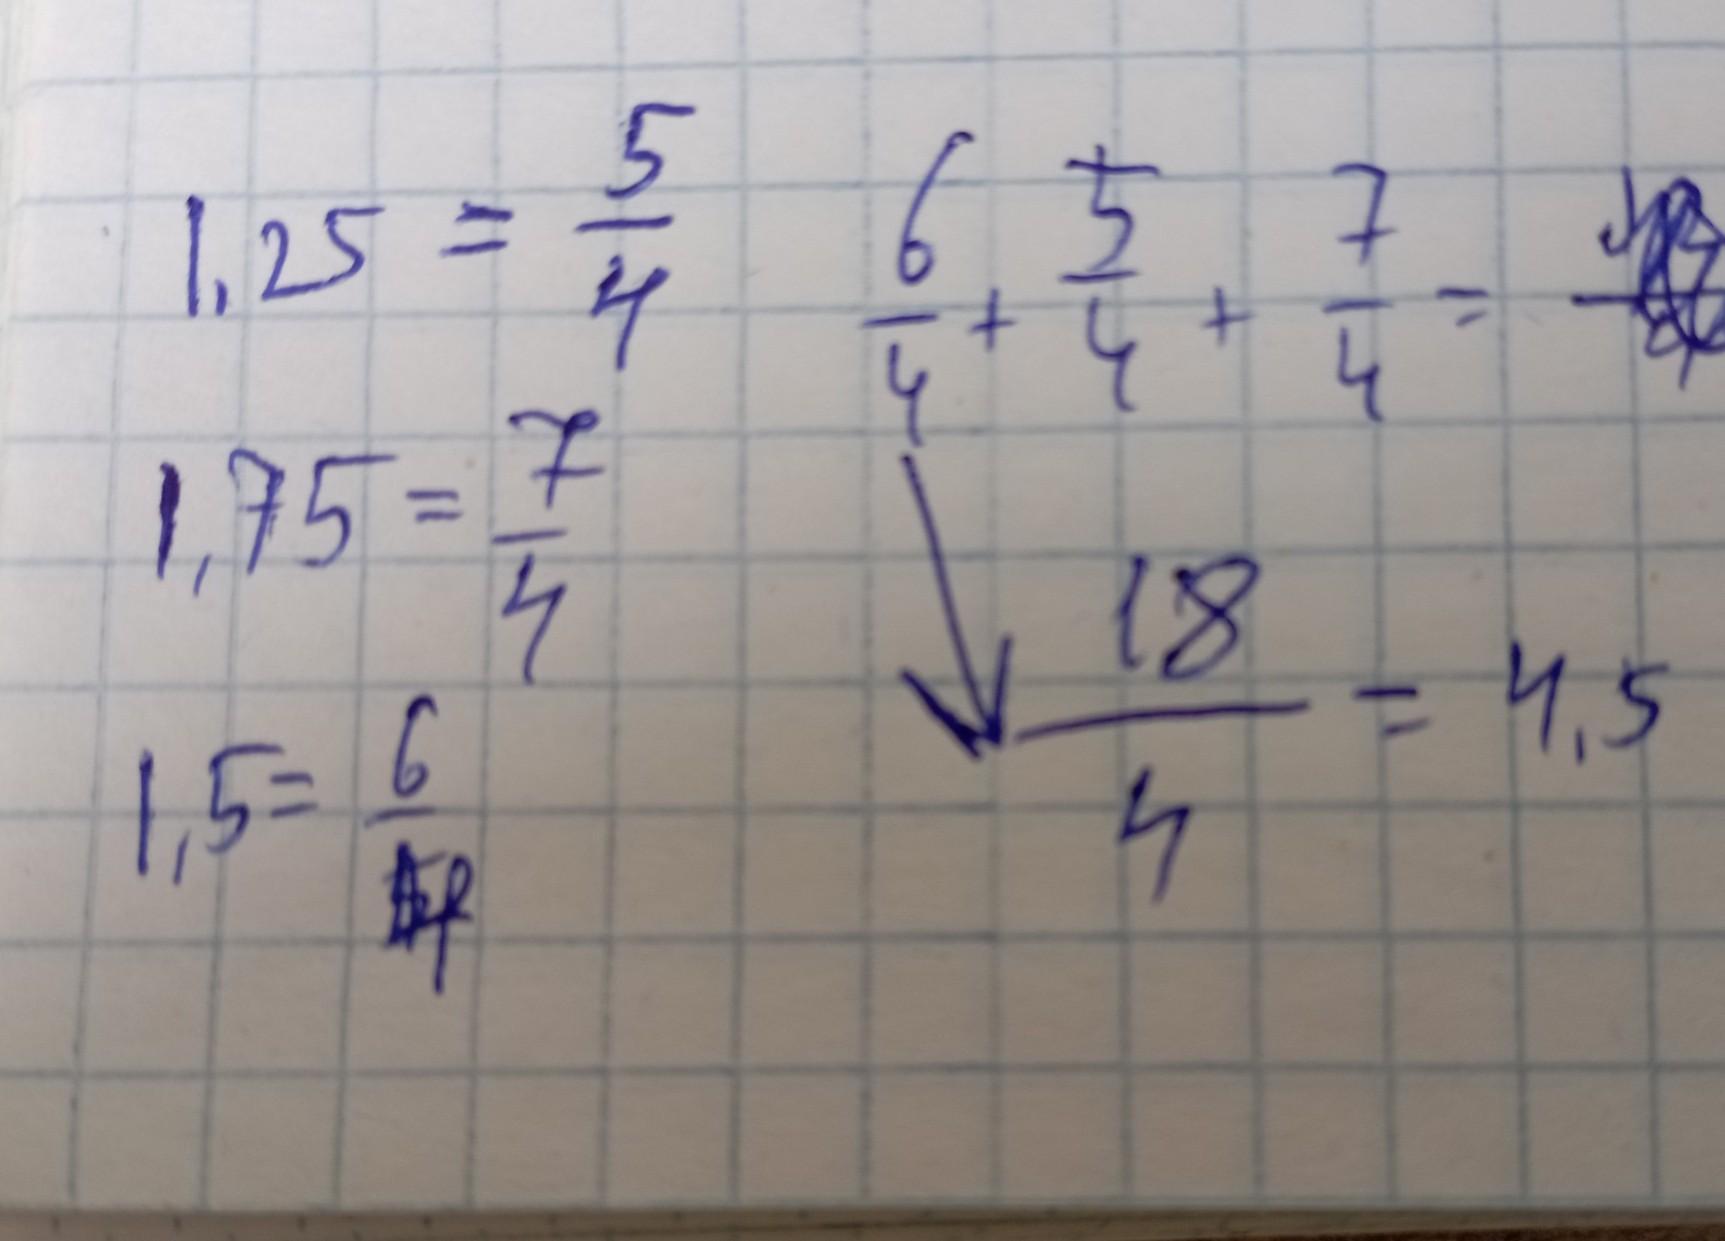 1,25 = 5/4
1,75 = 7/4
1,5 = 6/4
6/4 + 5/4 + 7/4 =
18/4 = 4,5